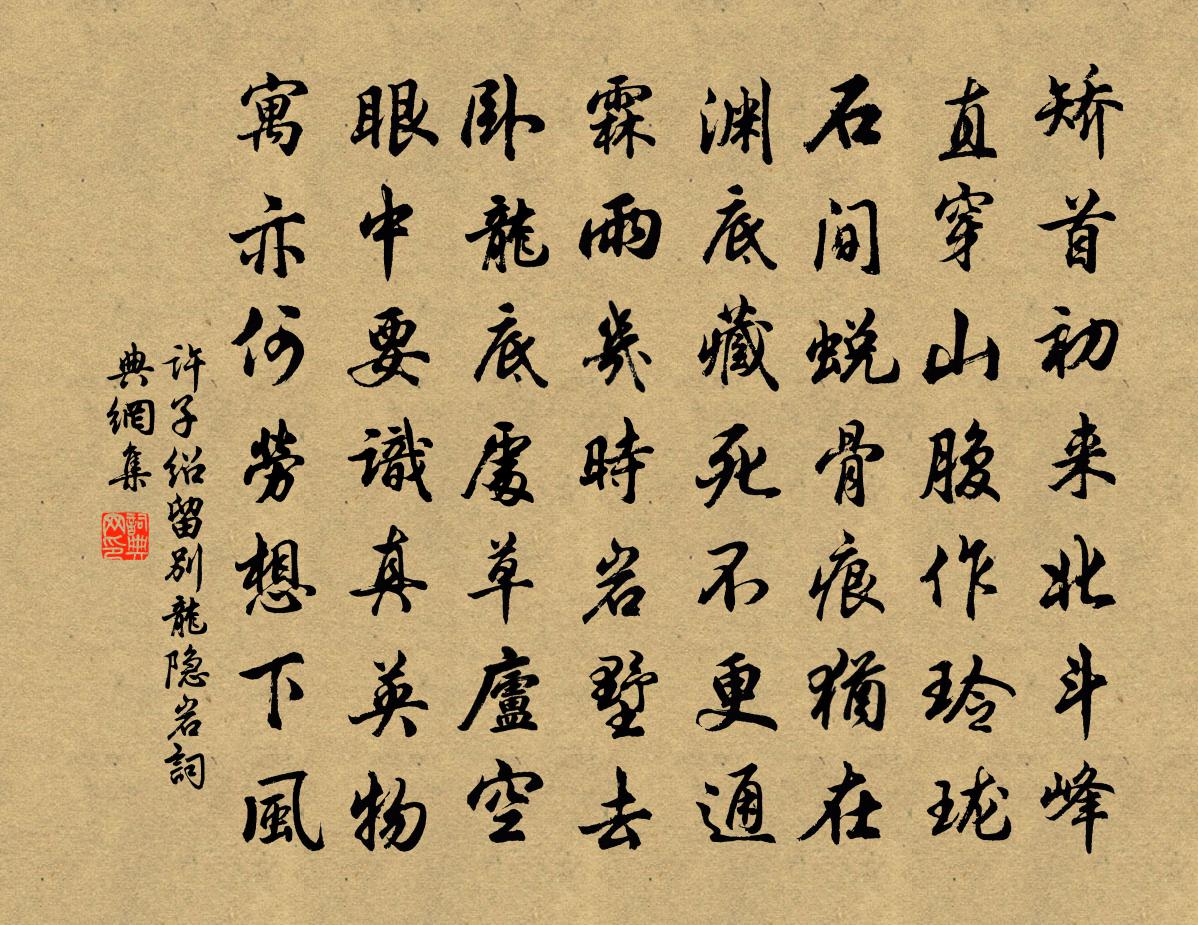 矫首初来北斗峰
直穿山腹作玲珑
石间蜕骨痕犹在
渊底藏死不更通
霖雨几时岩墅去
卧龙底处草庐空
眼中要识真英物
寓亦何劳想下风
许子绍留别龙隐岩词
典网集
詞典
网印